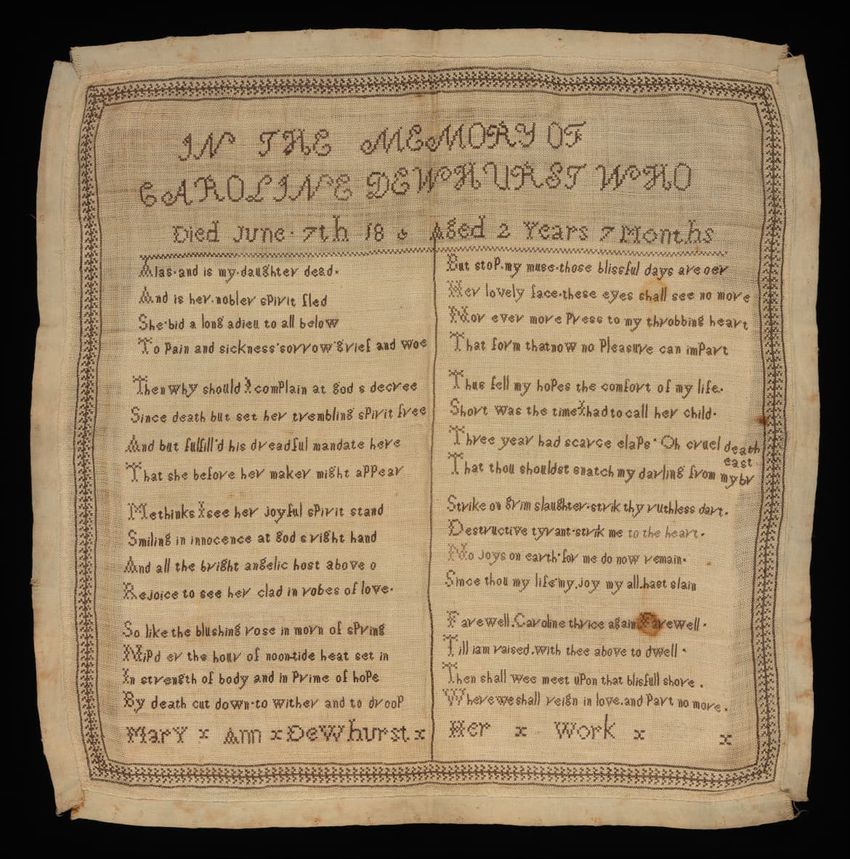 IN THE MEMORY OF
CAROLINE DEWHURST WHO
Died June · 7th 18 Aged 2 Years 7 Months
Alas · and is my · daughter dead ·
And is her · nobler spirit fled
She · bid a long adieu to all below
To Pain and sickness · sorrow · grief and woe
Then why should I complain at god s decree
Since death but set her trembling spirit free
And but fulfill'd his dreadful mandate here
That she before her maker might appear
Methinks I see her joyful spirit stand
Smiling in innocence at god s right hand
And all the bright angelic host above o
Rejoice to see her clad in robes of love ·
So like the blushing rose in morn of spring
Nip'd er the hour of noon-tide heat set in
In strength of body and in Prime of hope
By death cut down · to wither and to droop
Mary x Ann x Dewhurst x
But stop · my muse · those blissful days are oer
Her lovely face · these eyes shall see no more
Nor ever more Press to my throbbing heart
That form thatnow no Pleasure can impart
Thus fell my hopes the comfort of my life ·
Short was the time I had to call her child ·
Three year had scarce elaps · Oh cruel death
That thou shouldst snatch my darling from my br east
Strike on grim slaughter · strik thy ruthless dart ·
Destructive tyrant · strik me to the heart ·
No Joys on earth · for me do now remain ·
Since thou my life · my joy my all hast slain
Farewell · Caroline thrice again Farewell ·
Till iam raised · with thee above to dwell ·
Then shall wee meet upon that blisfull shore .
Where weshall reign in love · and Part no more .
Her x Work x x